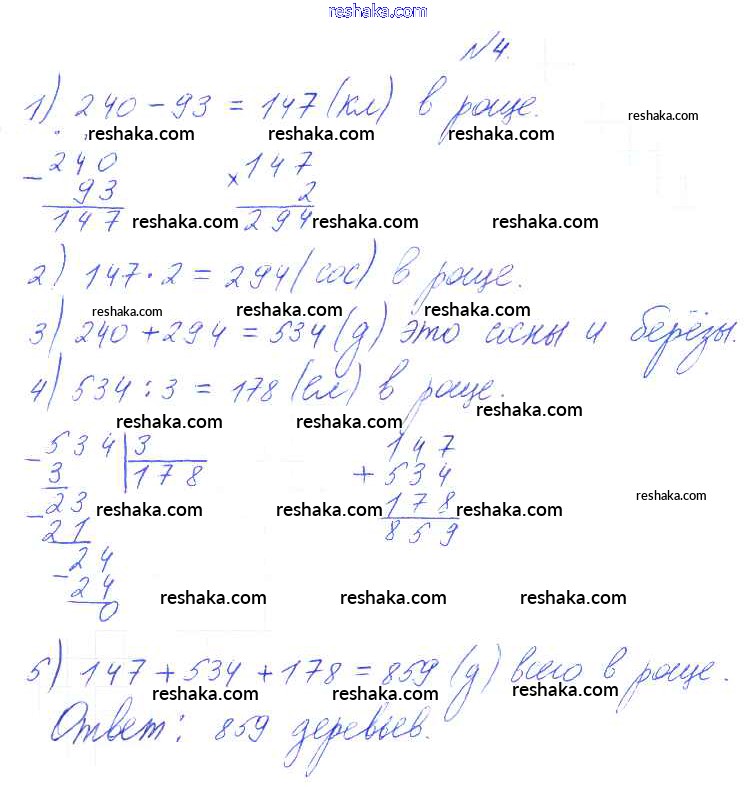 reshaka.com
№4.
1) 240 - 93 = 147 (кл) в роще.
reshaka.com reshaka.com reshaka.com reshaka.com
- 240 × 147
93 2
147 reshaka.com 294 reshaka.com reshaka.com
2) 147 · 2 = 294 (сос) в роще.
reshaka.com reshaka.com reshaka.com
3) 240 + 294 = 534 (д) это сосны и берёзы.
4) 534 : 3 = 178 (вл) в роще.
reshaka.com reshaka.com reshaka.com
- 534 | 3 147
3 178 + 534
- 23 reshaka.com reshaka.com 178 reshaka.com reshaka.com
21 859
- 24
24 reshaka.com reshaka.com reshaka.com
0
5) 147 + 534 + 178 = 859 (д) всего в роще.
reshaka.com reshaka.com reshaka.com
Ответ: 859 деревьев.